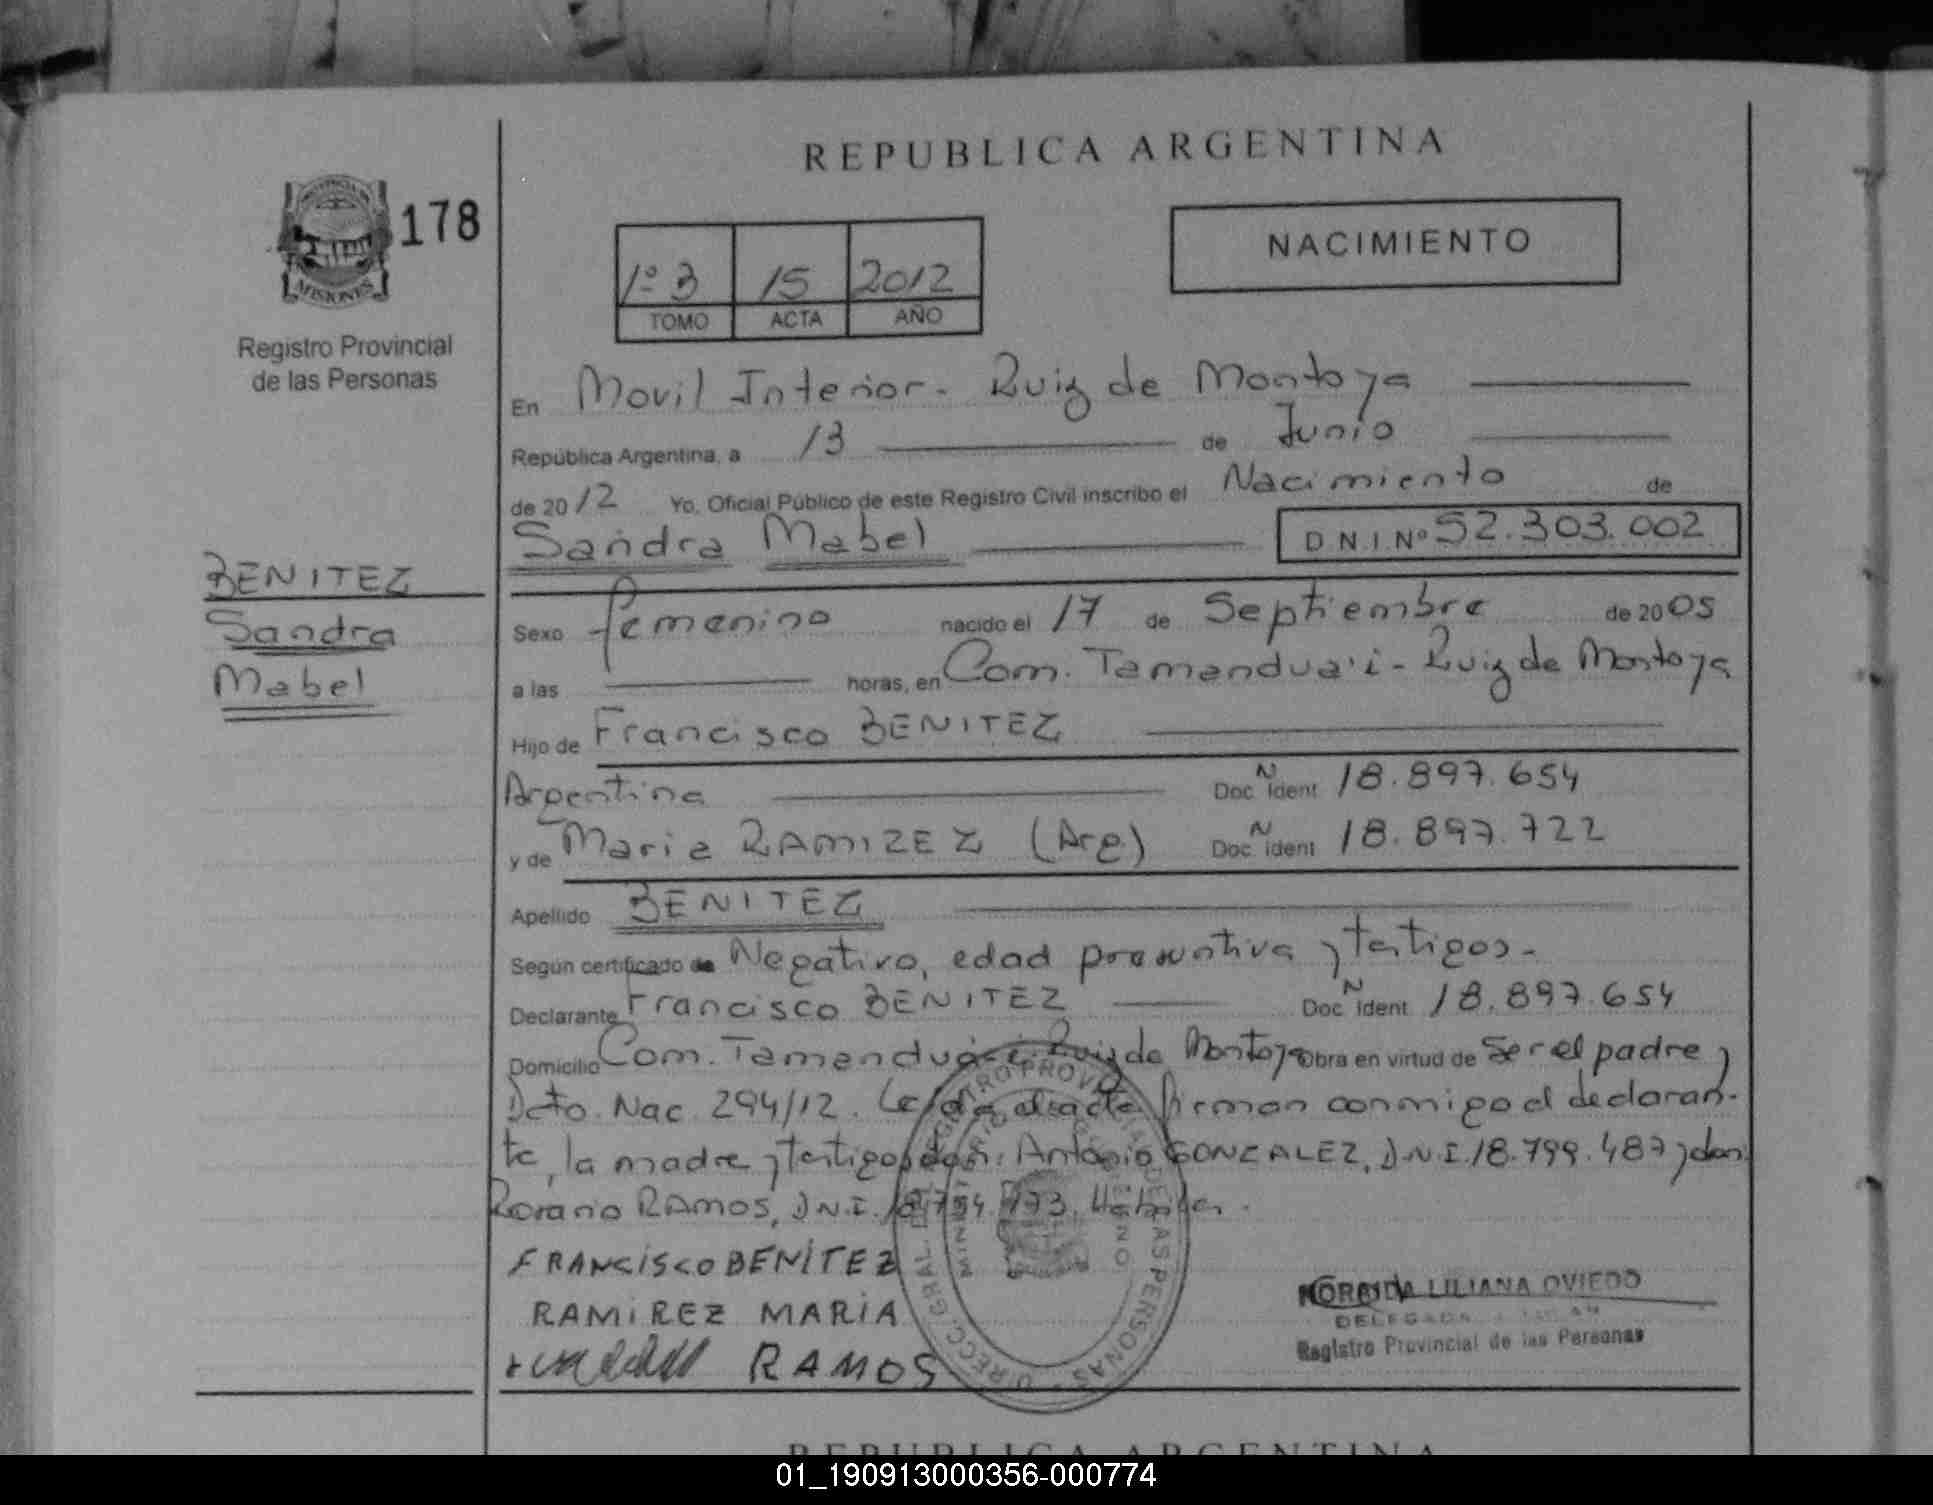 REPUBLICA ARGENTINA
178
NACIMIENTO
MISIONES
1º 3 15 2012
TOMO ACTA AÑO
Registro Provincial
de las Personas
En Movil Interior - Ruiz de Montoya
República Argentina, a 13 de Junio
de 2012 Yo, Oficial Público de este Registro Civil inscribo el Nacimiento de
Sandra Mabel D.N.I. Nº 52.303.002
BENITEZ
Sandra
Mabel
Sexo femenino nacido el 17 de Septiembre de 2005
a las horas, en Com. Tamandua'i - Ruiz de Montoya
Hijo de Francisco BENITEZ
Argentina Doc. N Ident 18.897.654
y de Maria RAMIREZ (Arg) Doc. N Ident 18.897.722
Apellido BENITEZ
Según certificado de Negativo, edad presuntiva y testigos.-
Declarante Francisco BENITEZ Doc. N Ident 18.897.654
Domicilio Com. Tamanduá-i Ruiz de Montoya Obra en virtud de Ser el padre y
Dcto. Nac. 294/12. Leída el acta firman conmigo el declaran-
te, la madre y testigos don: Antonio GONZALEZ, D.N.I. 18.799.487 y don
Rosario RAMOS, D.N.I. Hábiles.
FRANCISCO BENITEZ
RAMIREZ MARIA
RAMOS
DIRECC. GRAL. DEL REGISTRO PROVINCIAL DE LAS PERSONAS
MINISTERIO DE GOBIERNO
LILIANA OVIEDO
DELEGADA
Registro Provincial de las Personas
REPUBLICA ARGENTINA
01_190913000356-000774